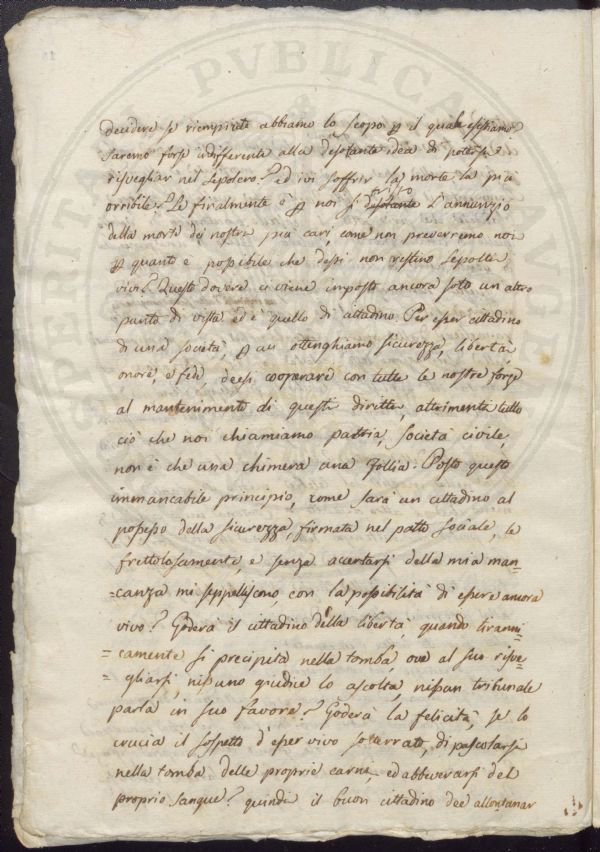 decidere se riempiute abbiamo lo scopo p il quale esistiamo
Saremo forse indifferenti alla desolante idea di potersi
risvegliar nel Sepolcro? ed ivi soffrir la morte la più
orribile? Se finalmente è p noi sì tristo L'annunzio
della morte dei nostri più cari, come non preverremo noi
p quanto è possibile che dessi non restino Sepolti
vivi? Questo dovere ci viene imposto ancora sotto un altro
punto di vista ed è quello di cittadino Per esser cittadino
di una società, p cui ottenghiamo sicurezza, libertà
onore, e fede, deesi cooperare con tutte le nostre forze
al mantenimento di questi diritti, altrimenti tutto
ciò che noi chiamiamo patria, società civile,
non è che una chimera una follia. Posto questo
immancabile principio, come sarà un cittadino al
possesso della sicurezza, firmata nel patto sociale, se
frettolosamente, e senza accertarsi della mia man=
=canza mi seppelliscono, con la possibilità di essere ancora
vivo? Goderà il cittadino della libertà, quando tiranni=
=camente si precipita nella tomba ove al suo risve=
=gliarsi, nissuno giudice lo ascolta, nissun tribunale
parla in suo favore? Goderà la felicità, se lo
crucia il sospetto d'esser vivo sotterrato, di pascolarsi
nella tomba delle proprie carni, ed abbeverarsi del
proprio sangue? quindi il buon cittadino dee allontanar